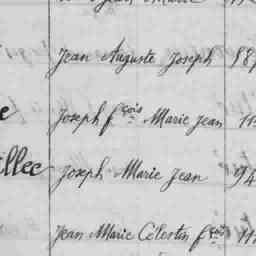 Jean Marie
Jean Auguste Joseph 88
e Joseph fçois Marie Jean 11
llec Joseph Marie Jean 94
Jean Marie Célestin fçois 11